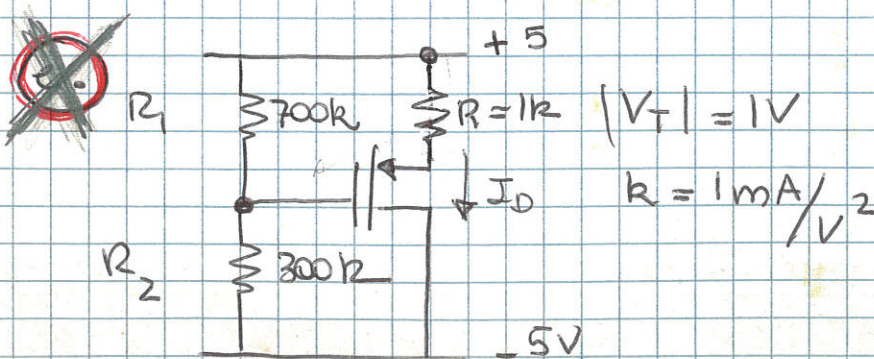 +5
R1 700k R=1k |VT| = 1V
ID k = 1mA/V²
R2 300k
-5V